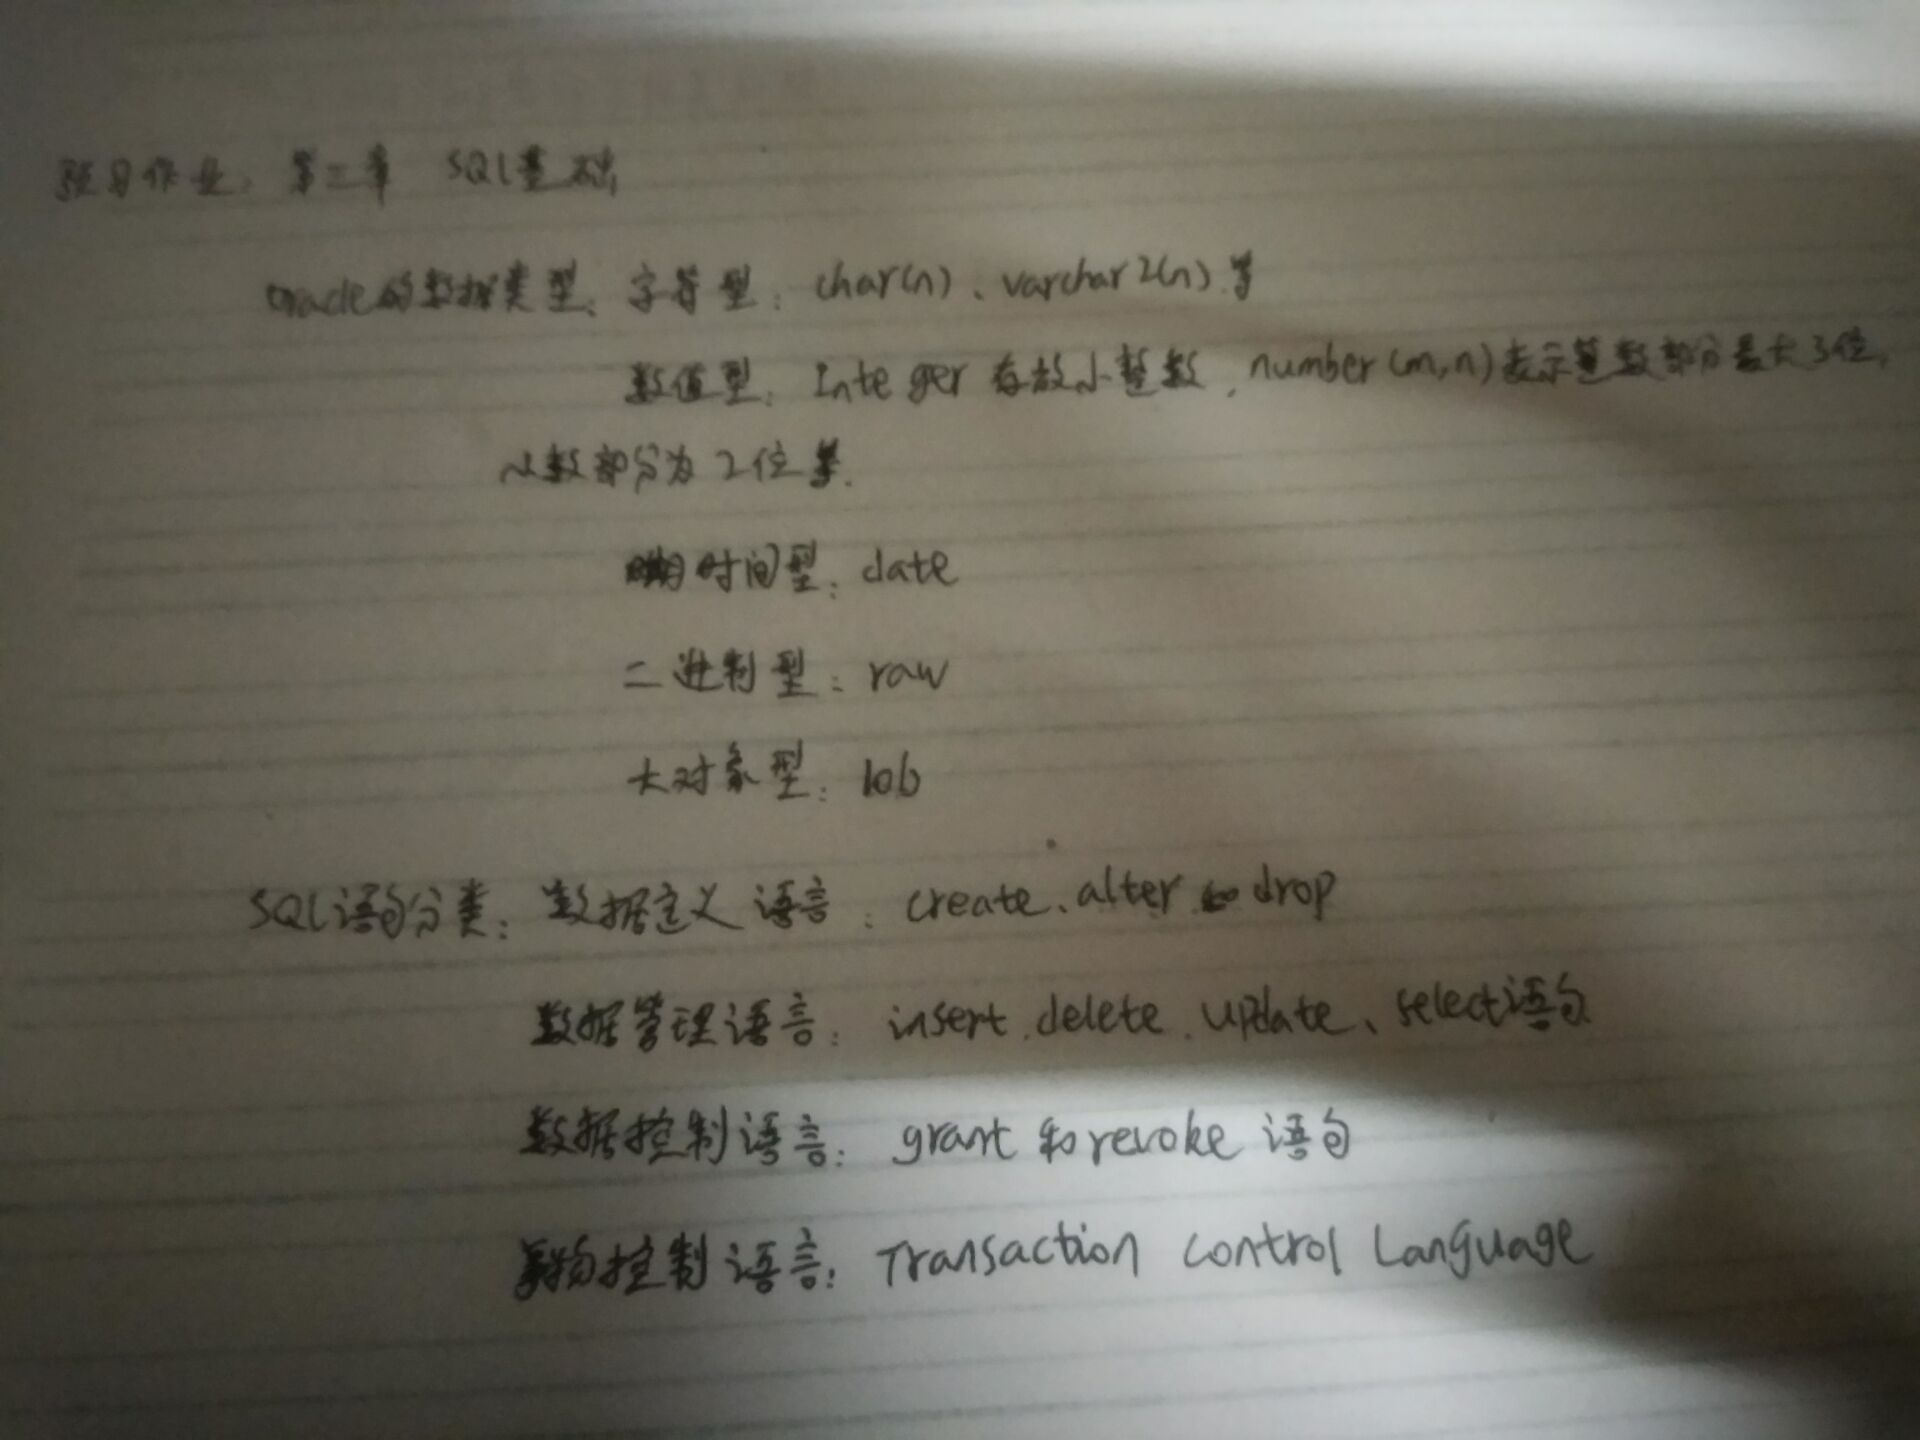 预习作业：第二章 SQL基础
oracle的数据类型：字符型：char(n)、varchar2(n)等
数值型：Integer 存放小整数，number(m,n)表示整数部分最大3位，
小数部分为2位等.
时间型：date
二进制型：raw
大对象型：lob
SQL语句分类：数据定义语言：create、alter、drop
数据管理语言：insert、delete、update、select语句
数据控制语言：grant和revoke语句
事物控制语言：Transaction Control Language